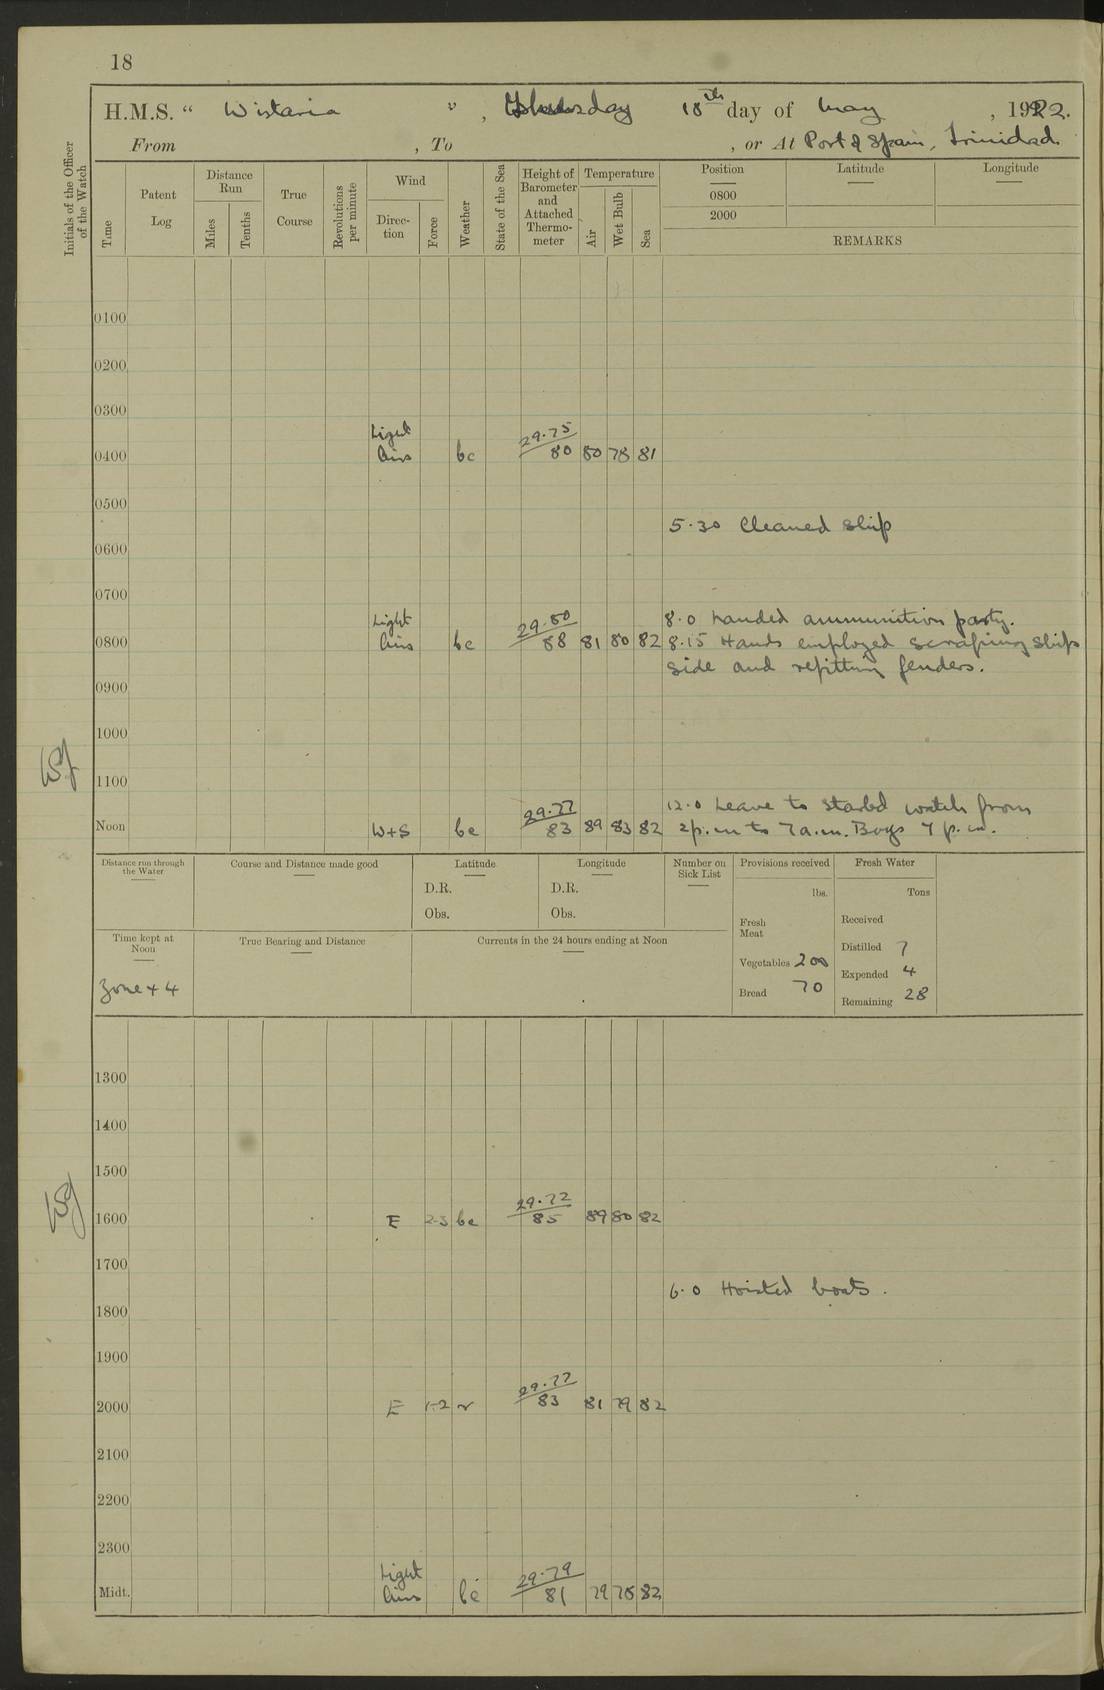 18
H.M.S. “ Wistaria ” , Thursday 18th day of May , 1922.
From , To , or At Port of Spain, Trinidad.
Initials of the Officer of the Watch
Time
Patent Log
Distance Run
Miles
Tenths
True Course
Revolutions per minute
Wind
Direc- tion
Force
Weather
State of the Sea
Height of Barometer and Attached Thermo- meter
Temperature
Air
Wet Bulb
Sea
Position Latitude Longitude
0800
2000
REMARKS
0100
0200
0300
Light 29.75
0400 Airs bc 80 80 78 81
0500
5.30 Cleaned ship
0600
0700
Light 29.80 8.0 Landed ammunition party.
0800 Airs bc 88 81 80 82 8.15 Hands employed scraping ships
side and refitting fenders.
0900
1000
1100
29.77 12.0 Leave to starbd watch from
Noon W+S bc 83 89 83 82 2 p.m to 7 a.m. Boys 7 p.m.
Distance run through the Water
Course and Distance made good
Latitude
D.R.
Obs.
Longitude
D.R.
Obs.
Number on Sick List
Provisions received
lbs.
Fresh Meat
Vegetables 200
Bread 70
Fresh Water
Tons
Received
Distilled 7
Expended 4
Remaining 28
Time kept at Noon
Zone + 4
True Bearing and Distance
Currents in the 24 hours ending at Noon
1300
1400
1500
29.72
1600 E 2-3 bc 85 89 80 82
1700
6.0 Hoisted boats.
1800
1900
29.77
2000 E 1-2 r 83 81 79 82
2100
2200
2300
Light 29.79
Midt. Airs bc 81 79 78 82